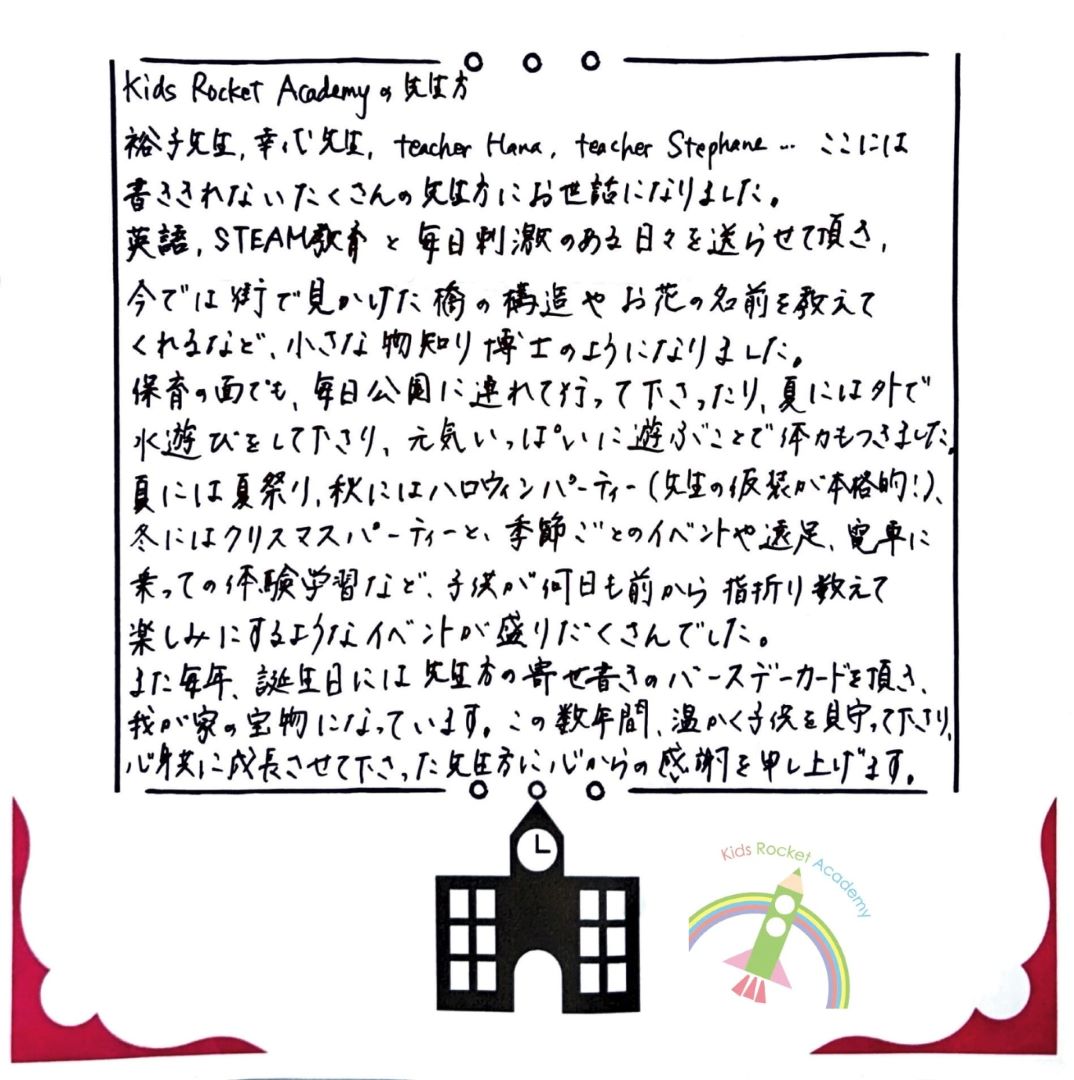 Kids Rocket Academyの先生方
裕子先生, 幸心先生, teacher Hana, teacher Stephane … ここには
書ききれないたくさんの先生方にお世話になりました。
英語, STEAM教育と毎日刺激のある日々を送らせて頂き,
今では街で見かけた橋の構造やお花の名前を教えて
くれるなど、小さな物知り博士のようになりました。
保育の面でも、毎日公園に連れて行って下さったり、夏には外で
水遊びをして下さり、元気いっぱいに遊ぶことで体力もつきました。
夏には夏祭り, 秋にはハロウィンパーティー(先生の仮装が本格的!)、
冬にはクリスマスパーティーと、季節ごとのイベントや遠足、電車に
乗っての体験学習など、子供が何日も前から指折り数えて
楽しみにするようなイベントが盛りだくさんでした。
また毎年、誕生日には先生方の寄せ書きのバースデーカードを頂き、
我が家の宝物になっています。この数年間、温かく子供を見守って下さり、
心身共に成長させて下さった先生方に心からの感謝を申し上げます。
Kids Rocket Academy